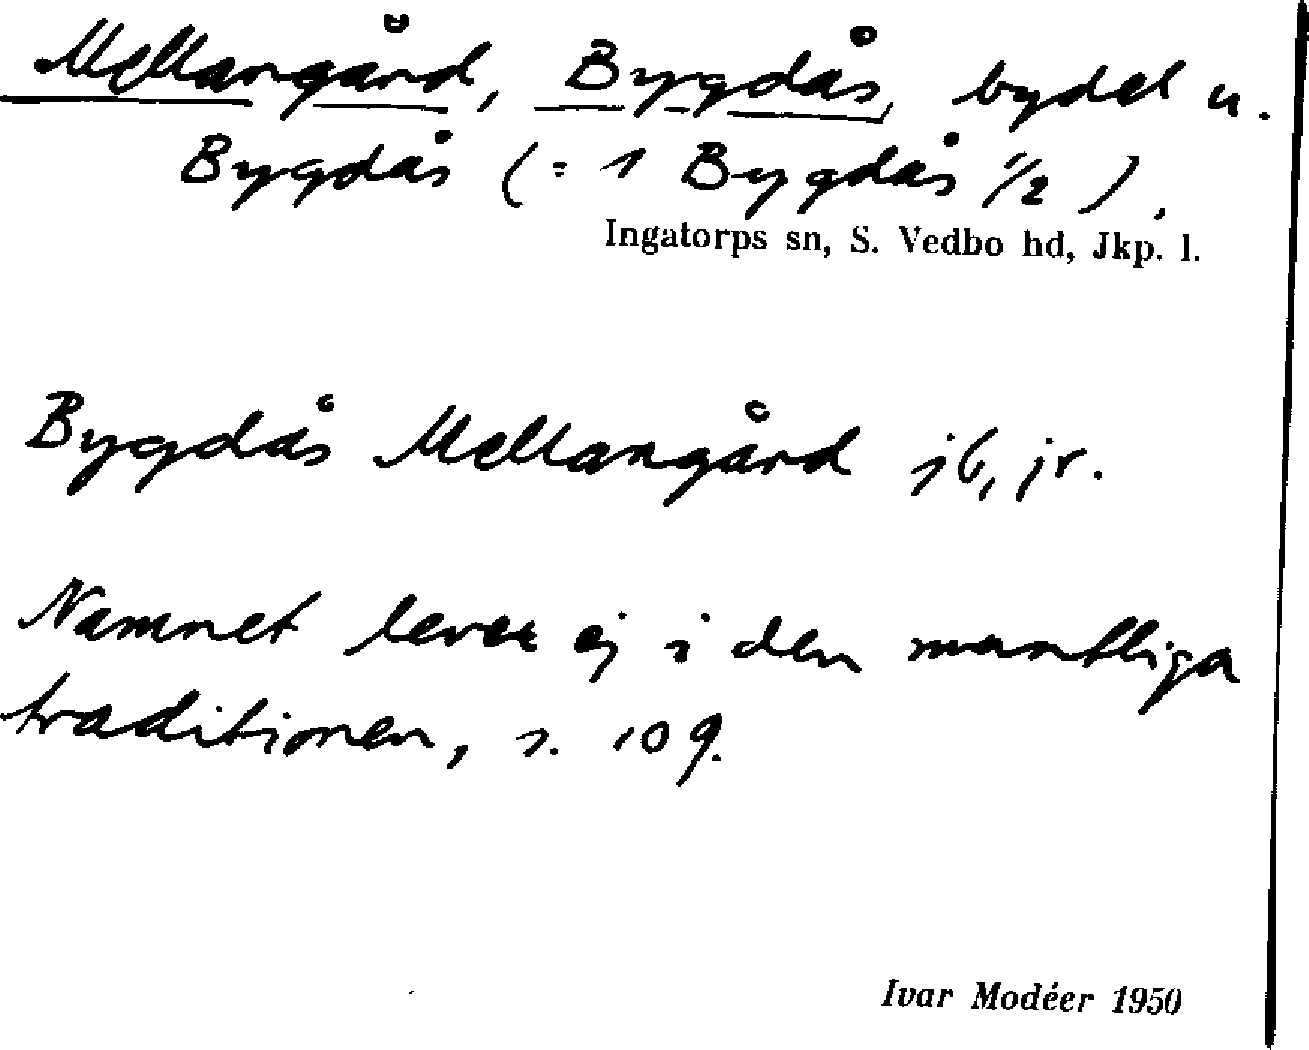 Mellangård, Bygdås, bydel u.
Bygdås (= 1 Bygdås 1/2).
Ingatorps sn, S. Vedbo hd, Jkp. l.
Bygdås Mellangård jb, jr.
Namnet lever ej i den muntliga
traditionen, s. 109.
Ivar Modéer 1950